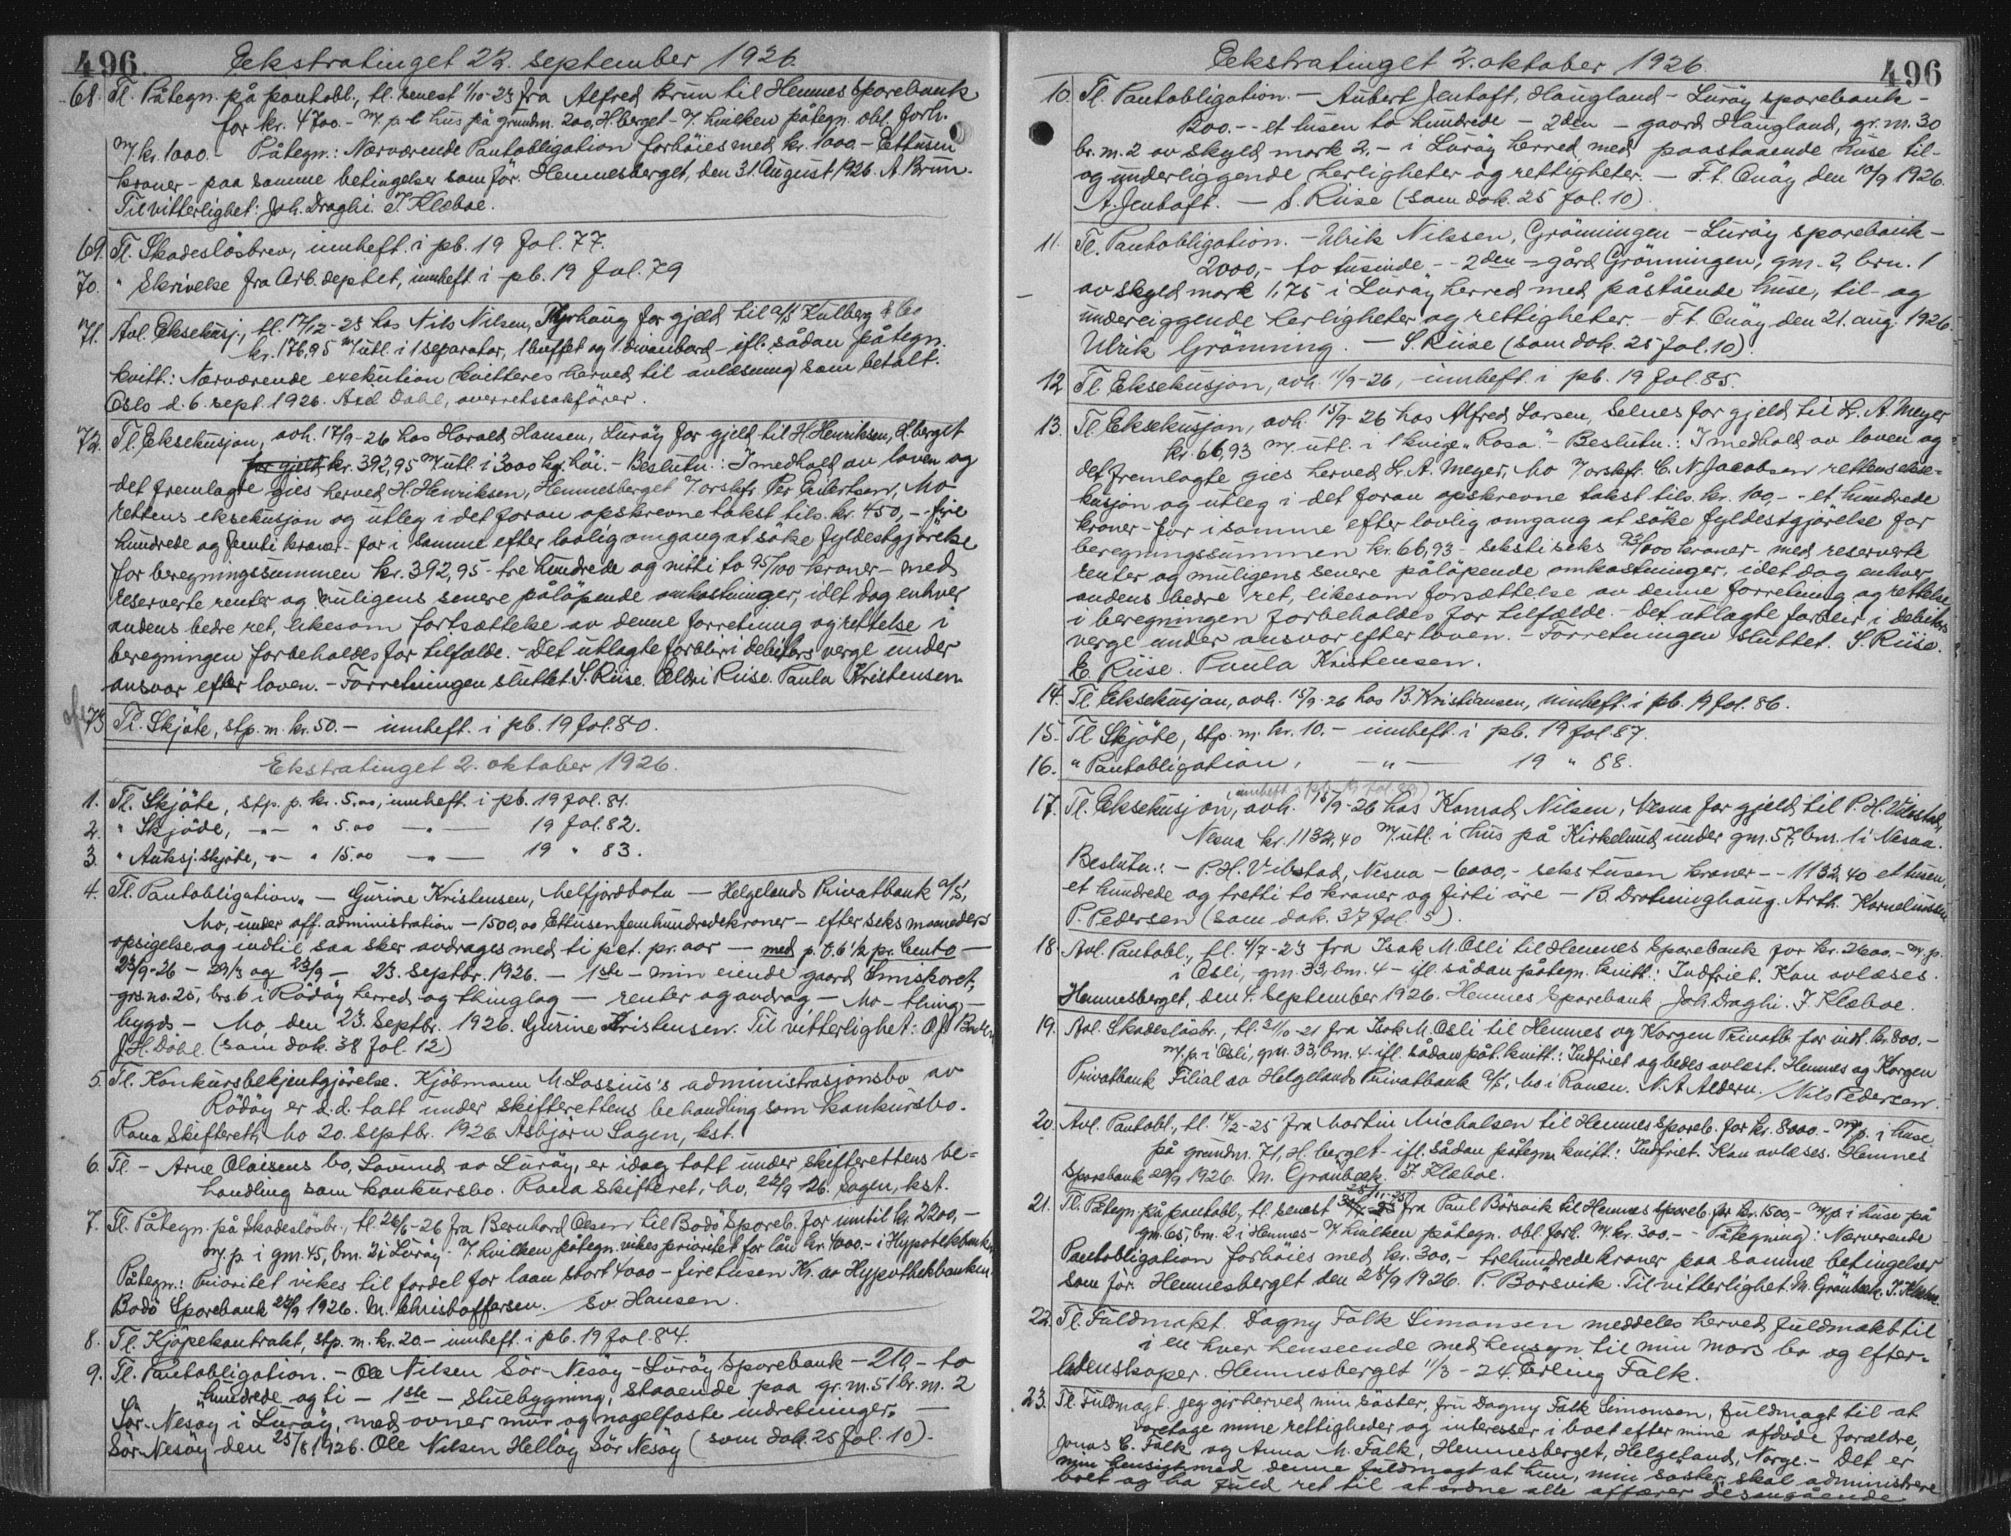 496
Ekstratinget 22. september 1926.
68. Tl. Påtegn. på pantobl., tl. senest 1/10-23 fra Alfred Brun til Hemnes Sparebank
for kr. 4700.- m/ p. i hus på grundm. 200, H.berget - v/ hvilken påtegn. obl. forh.
m/ kr. 1000.- Påtegn.: Nærværende Pantobligation forhöies med kr. 1000.- Ettusen
kroner - paa samme betingelser som för. Hemnesberget, den 31. August 1926. A. Brun.
Til vitterlighet: Joh. Draghi. J. Klæboe.
69. Tl. Skadeslösbrev, innheft. i pb. 19 fol. 77.
70. " Skrivelse fra Arb. deptet, innheft. i pb. 19 fol. 79
71. Avl. Eksekusj., tl. 17/12-25 hos Nils Nilsen, for gjæld til A/S Kulberg & Co
kr. 176,95 m/ utl. i 1 separator, 1 buffet og 1 divanbord - ifl. sådan påtegn.
kvitt.: Nærværende exekution kvitteres herved til avlæsning som betalt.
Oslo d. 6. sept. 1926. Axel Dahl, overretssakförer.
72. Tl. Eksekusjon, avh. 17/9-26 hos Harald Hansen, Luröy for gjeld til H. Henriksen, H.berget
for gjeld kr. 392,95 m/ utl. i 3000 kg. höi. - Beslutn.: I medhold av loven og
det fremlagte gies herved H. Henriksen, Hemnesberget v/ orskfr. Per Eilertsen, Mo -
rettens eksekusjon og utleg i det foran opskrevne takst tils. kr. 450,- - fire
hundrede og femti kroner - for i samme efter lovlig omgang at söke fyldestgjörelse
for beregningssummen kr. 392,95 - tre hundrede og nitti to 95/100 kroner - med
reserverte renter og muligens senere påløpende omkostninger, idet dog enhver
andens bedre ret, likesom fortsættelse av denne forretning og rettelse i
beregningen forbeholdes for tilfælde. - Det utlagte forblir i debitors verge under
ansvar efter loven. - Forretningen sluttet. S. Riise. Aldri Riise. Paula Kristensen
73. Tl. Skjöte, stp. m. kr. 50.- innheft. i pb. 19 fol. 80.
Ekstratinget 2. oktober 1926.
1. Tl. Skjöte, stp. p. kr. 5.00, innheft. i pb. 19 fol. 81.
2. " Skjöde, -"- " 5.00 -"- 19 fol. 82.
3. " Auksj. skjöte, -"- " 15.00 -"- 19 " 83.
4. Tl. Pantobligation. - Gurine Kristensen, Melfjordbotn - Helgelands Privatbank A/S,
Mo, under off. administration - 1500,00 Ettusenfemhundredekroner - efter seks maaneders
opsigelse og indtil saa sker avdrages med ti pct. pr. aar - med p. t. 6 1/2 pr. Cento -
23/9-26 - 29/3 og 23/9 - 23. Septbr. 1926. - 1ste - min eiende gaard Smiskoret,
grs. no. 25, brs. 6 i Rödöy herred og thinglag - renter og avdrag - Mo - thing -
bygds - Mo, den 23. Septbr. 1926. Gurine Kristensen. Til vitterlighet:
J. H. Dahl. (som dok. 38 fol. 12)
5. Tl. Konkursbekjentgjörelse. Kjöbmann M. Lossius's administrasjonsbo av
Rödöy er d.d. tatt under skifterettens behandling som konkursbo.
Rana Skifterett, Mo 20. Septbr. 1926. Asbjørn Sagen, kst.
6. Tl - Arne Olaisens bo, Lovund av Luröy, er idag tatt under skifterettens be-
handling som konkursbo. Rana Skifteret, Mo, 22/9 26. Sagen, kst.
7. Tl. Påtegn. på Skadeslösbr., tl. 26/6-26 fra Bernhard Olsen til Bodö Spareb. for inntil kr. 2200,-
m/ p. i gm. 45, bm. 2 i Luröy - v/ hvilken påtegn. vikes prioritet for lån kr. 4000.- i Hypotekbanken
Påtegn.: Prioritet vikes til fordel for laan stort 4000 - firetusen Kr. av Hypothekbanken
Bodö Sparebank 22/9 1926. M. Christoffersen. Sv. Hansen.
8. Tl. Kjöpekontrakt, stp. m. kr. 20.- innheft. i pb. 19 fol. 84.
9. Tl. Pantobligation. - Ole Nilsen Sör-Nesöy - Luröy Sparebank - 210,- to
hundrede og ti - 1ste - Stuebygning, staaende paa gr. m. 51 br. m. 2
Sör-Nesöy i Luröy, med ovner mur og nagelfaste indretninger. -
Sör-Nesöy den 25/8 1926. Ole Nilsen Hellöy Sör Nesöy (som dok. 25 fol. 10).
Ekstratinget 2. oktober 1926.
496
10. Tl. Pantobligation. - Aubert Jentoft, Haugland - Luröy sparebank -
1200.- - et tusen to hundrede - 2den - gaard Haugland, gr. m. 30
br. m. 2 av skyld mark 2,- i Luröy herred, med paastaaende huse til-
og underliggende herligheter og rettigheter. - F. t. Onöy den 10/9 1926.
A. Jentoft. - S. Riise (som dok. 25 fol. 10).
11. Tl. Pantobligation. - Ulrik Nilssen, Grönningen - Luröy sparebank -
2000,- to tusinde - - 2den - gård Grönningen, gm. 2, brn. 1
av skyld mark 1,75 i Luröy herred med påstående huse, til- og
underliggende herligheter og rettigheter. - F. t. Onöy den 21. aug. 1926.
Ulrik Grönning. - S. Riise (som dok. 25 fol. 10).
12. Tl. Eksekusjon, avh. 11/9-26, innheft. i pb. 19 fol. 85.
13. Tl. Eksekusjon, avh. 15/9-26 hos Alfred Larsen, Selnes for gjeld til L. A. Meyer
kr. 66,93 m/ utl. i 1 kvige "Rosa" - Beslutn.: I medhold av loven og
det fremlagte gies herved L. A. Meyer, Mo v/ orskfr. C. N. Jacobsen rettens ekse-
kusjon og utleg i det foran opskrevne takst tils. kr. 100,- - et hundrede
kroner - for i samme efter lovlig omgang at söke fyldestgjörelse for
beregningssummen kr. 66,93 - sekstiseks 93/100 kroner - med reserverte
renter og muligens senere påløpende omkostninger, idet dog enhver
andens bedre ret, likesom forsættelse av denne forretning og rettelse
i beregningen forbeholdes for tilfælde - Det utlagte forblir i debitors
verge under ansvar efter loven. - Forretningen sluttet. S. Riise.
E. Riise. Paula Kristensen.
14. Tl. Eksekusjon, avh. 15/9-26 hos B. Kristiansen, innheft. i pb. 19 fol. 86.
15. Tl. Skjöte, stp. m. kr. 10.- innheft. i pb. 19 fol. 87.
16. " Pantobligation, -"- 19 " 88.
(innheft. i pb. 19 fol. 89)
17. Tl. Eksekusjon, avh. 15/9-26 hos Konrad Nilsen, Nesna for gjeld til P. H. Vibstad,
Nesna kr. 1132,40 m/ utl. i hus på Kirkelund under gm. 57, bm. 1 i Nesna.
Beslutn.: - P. H. Vibstad, Nesna - 6000,- seks tusen kroner - - 1132,40 et tusen,
et hundrede og tretti to kroner og firti öre - B. Drotninghaug. Arth. Korneliussen
P. Pedersen (som dok. 37 fol. 5).
18. Avl. Pantobl., tl. 4/7-23 fra Isak M. Osli til Hemnes Sparebank for kr. 2600.- m/ p.
i Osli, gm. 33, bm. 4 - ifl. sådan påtegn. kvitt.: Indfriet. Kan avlæses.
Hemnesberget, den 4. September 1926. Hemnes Sparebank Joh. Draghi. J. Klæboe.
19. Avl. Skadeslösbr., tl. 31/10-21 fra Isak M. Osli til Hemnes og Korgen Privatb. for indt. kr. 800.-
m/ p. i Osli, gm. 33, bm. 4 - ifl. sådan påt. kvitt.: Indfriet og bedes avlæst. Hemnes og Korgen
Privatbank Filial av Helgelands Privatbank A/S, Mo i Ranen. N. A. Aldern. Nils Pedersen.
20. Avl. Pantobl., tl. 14/2-25 fra Martin Michalsen til Hemnes Spareb. for kr. 8000.- m/ p. i huse
på grundm. 71, H.berget - ifl. sådan påtegn. kvitt.: Indfriet. Kan avlæses. Hemnes
Sparebank 29/9 1926. M. Grönbæk. J. Klæboe.
21. Tl. Påtegn. på pantobl., tl. senest 25/11-25 fra Paul Börsvik til Hemnes Spareb. for kr. 1500,- m/ p. i huse på
gm. 65, bm. 2 i Hemnes - v/ hvilken påtegn. obl. forh. m/ kr. 300.- - Påtegning: Nærværende
Pantobligation forhöies med kr. 300,- trehundrede kroner paa samme betingelser
som för. Hemnesberget den 28/9 1926. P. Borsvik. Til vitterlighet: M. Grönbæk. J. Klæboe.
22. Tl. Fuldmakt. Dagny Falk Simonsen meddeles herved fuldmakt til
i en hver henseende med hensyn til min mors bo og efter-
ladenskaper. Hemnesberget 11/3-24. Erling Falk.
23. Tl. Fuldmagt. Jeg gir herved min söster, fru Dagny Falk Simonsen, fuldmagt til at
varetage mine rettigheder og interesser i boet efter mine afdöde forældre,
Jonas C. Falk og Anna M. Falk, Hemnesberget, Helgeland, Norge. - Det er
min hensigt med denne fuldmagt at hun, min söster, skal administrere
boet og ha fuld ret til at ordne alle affærer desangående